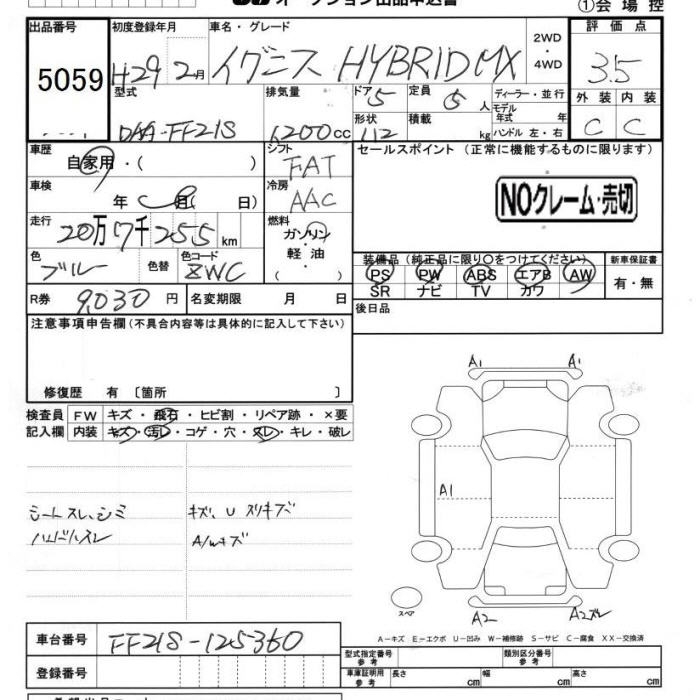 オークション出品申込書
①会場控
出品番号 初度登録年月 車名・グレード 2WD・4WD 評価点
5059 H29年 2月 イグニス HYBRID MX 3.5
型式 排気量 ドア 定員 ディーラー・並行 外装 内装
DAA-FF21S 1200cc 5 5人 モデル年式 年 C C
形状 積載 kg ハンドル 左・右
112
車歴 シフト セールスポイント (正常に機能するものに限ります)
自家用・( ) FAT
車検 冷房 NOクレーム・売切
年 月 日) AAC
走行 燃料
20万7千255km ガソリン・軽油
色 色替 色コード ( ) 装備品 (純正品に限り○をつけてください) 新車保証書
ブルー ZWC PS PW ABS エアB AW 有・無
SR ナビ TV カワ
R券 9,030円 名変期限 月 日 後日品
注意事項申告欄(不具合内容等は具体的に記入して下さい)
修復歴 有 〔箇所 〕
検査員 FW キズ・飛石・ヒビ割・リペア跡・×要
記入欄 内装 キズ・汚レ・コゲ・穴・スレ・キレ・破レ
A1 A1
シートスレ、シミ キズ、U スリキズ
ハンドルスレ A/Wキズ
A1
スペア A2 A2スレ
A-キズ E-エクボ U-凹み W-補修跡 S-サビ C-腐食 XX-交換済
車台番号 FF21S-125360
型式指定番号 参考 類別区分番号 参考
登録番号 車庫証明用 参考 長さ cm 幅 cm 高さ cm